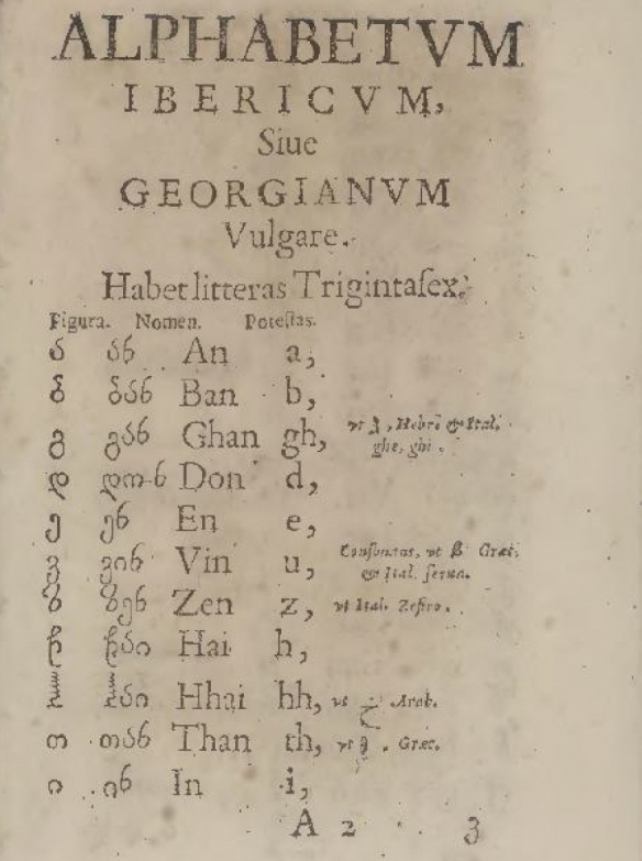 ALPHABETVM
IBERICVM,
Siue
GEORGIANVM
Vulgare.
Habet litteras Trigintasex.
Figura. Nomen. Potestas.
ა ან An a,
ბ ბან Ban b,
გ გან Ghan gh, vt ג, Hebr. & Ital. ghe, ghi.
დ დონ Don d,
ე ენ En e,
ვ ვინ Vin u, Consonans, vt β Græc. & Ital. serua.
ზ ზენ Zen z, vt Ital. Zefiro.
Hai h,
Hhai hh, vt Arab.
თ თან Than th, vt Græc.
ი ინ In i,
A 2 3